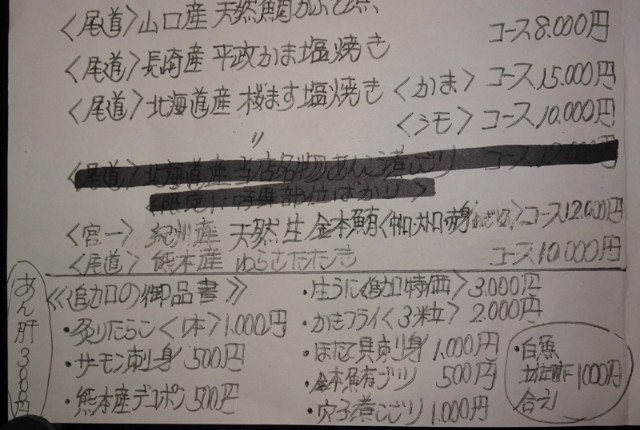 <尾道>山口産 天然鯛かぶと煮 コース8.000円
<尾道>長崎産 平政かま塩焼き <かま> コース15.000円
<尾道>北海道産 桜ます塩焼き <シモ> コース10.000円
〃
<尾道>北海道産 当店名物あんこう煮こごり コース
<宮一>紀州産 天然生金本鮪 コース12.000円
<尾道>熊本産 わらさたたき コース10.000円
《追加の御品書》
・炙りたらこ<1本>1.000円
・サーモン刺身 500円
・熊本産デコポン 500円
・生うに<追加特価>3.000円
・かきフライ<3粒>2.000円
・ほたて貝刺身 1.000円
・金本鮪ブツリ 500円
・穴子煮こごり 1.000円
・白魚
1000円
合え
あん肝3000円